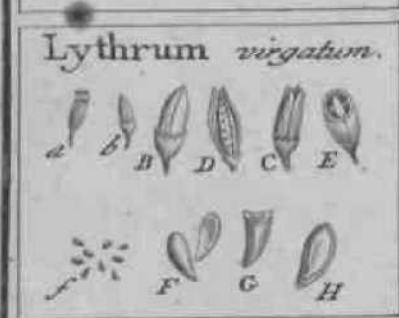 Lythrum virgatum.
a b B D C E
f F G H